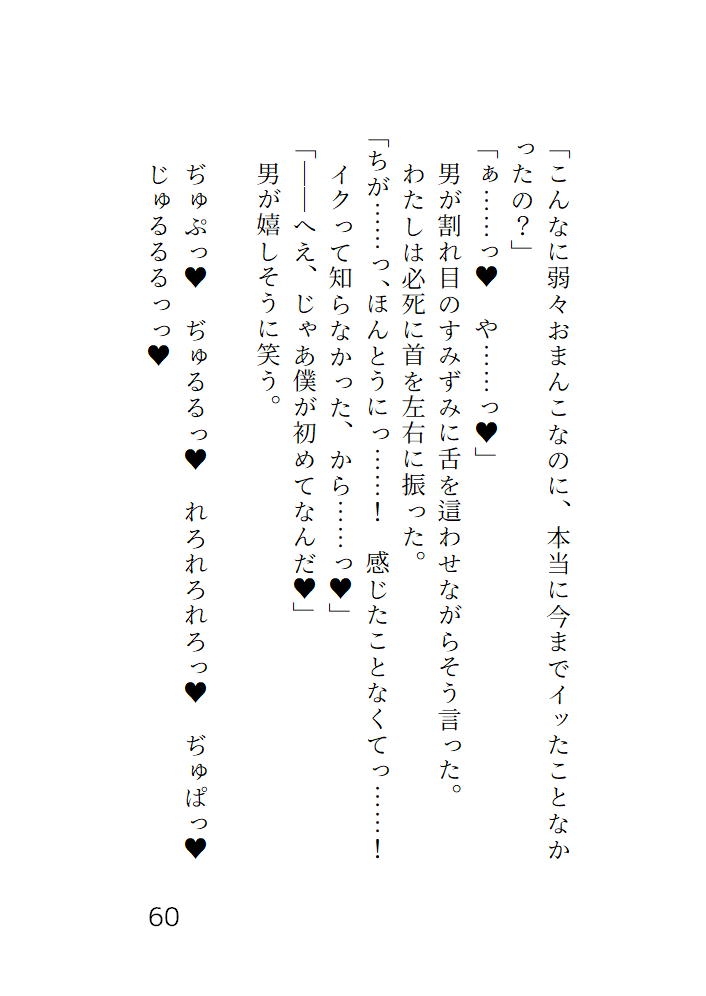 「こんなに弱々おまんこなのに、本当に今までイッたことなか
ったの？」
「ぁ……っ♥　や……っ♥」
男が割れ目のすみずみに舌を這わせながらそう言った。
わたしは必死に首を左右に振った。
「ちが……っ、ほんとうにっ……！　感じたことなくてっ……！
イクって知らなかった、から……っ♥」
「――へえ、じゃあ僕が初めてなんだ♥」
男が嬉しそうに笑う。
ぢゅぷっ♥　ぢゅるるっ♥　れろれろれろっ♥　ぢゅぱっ♥
じゅるるるっっ♥
60